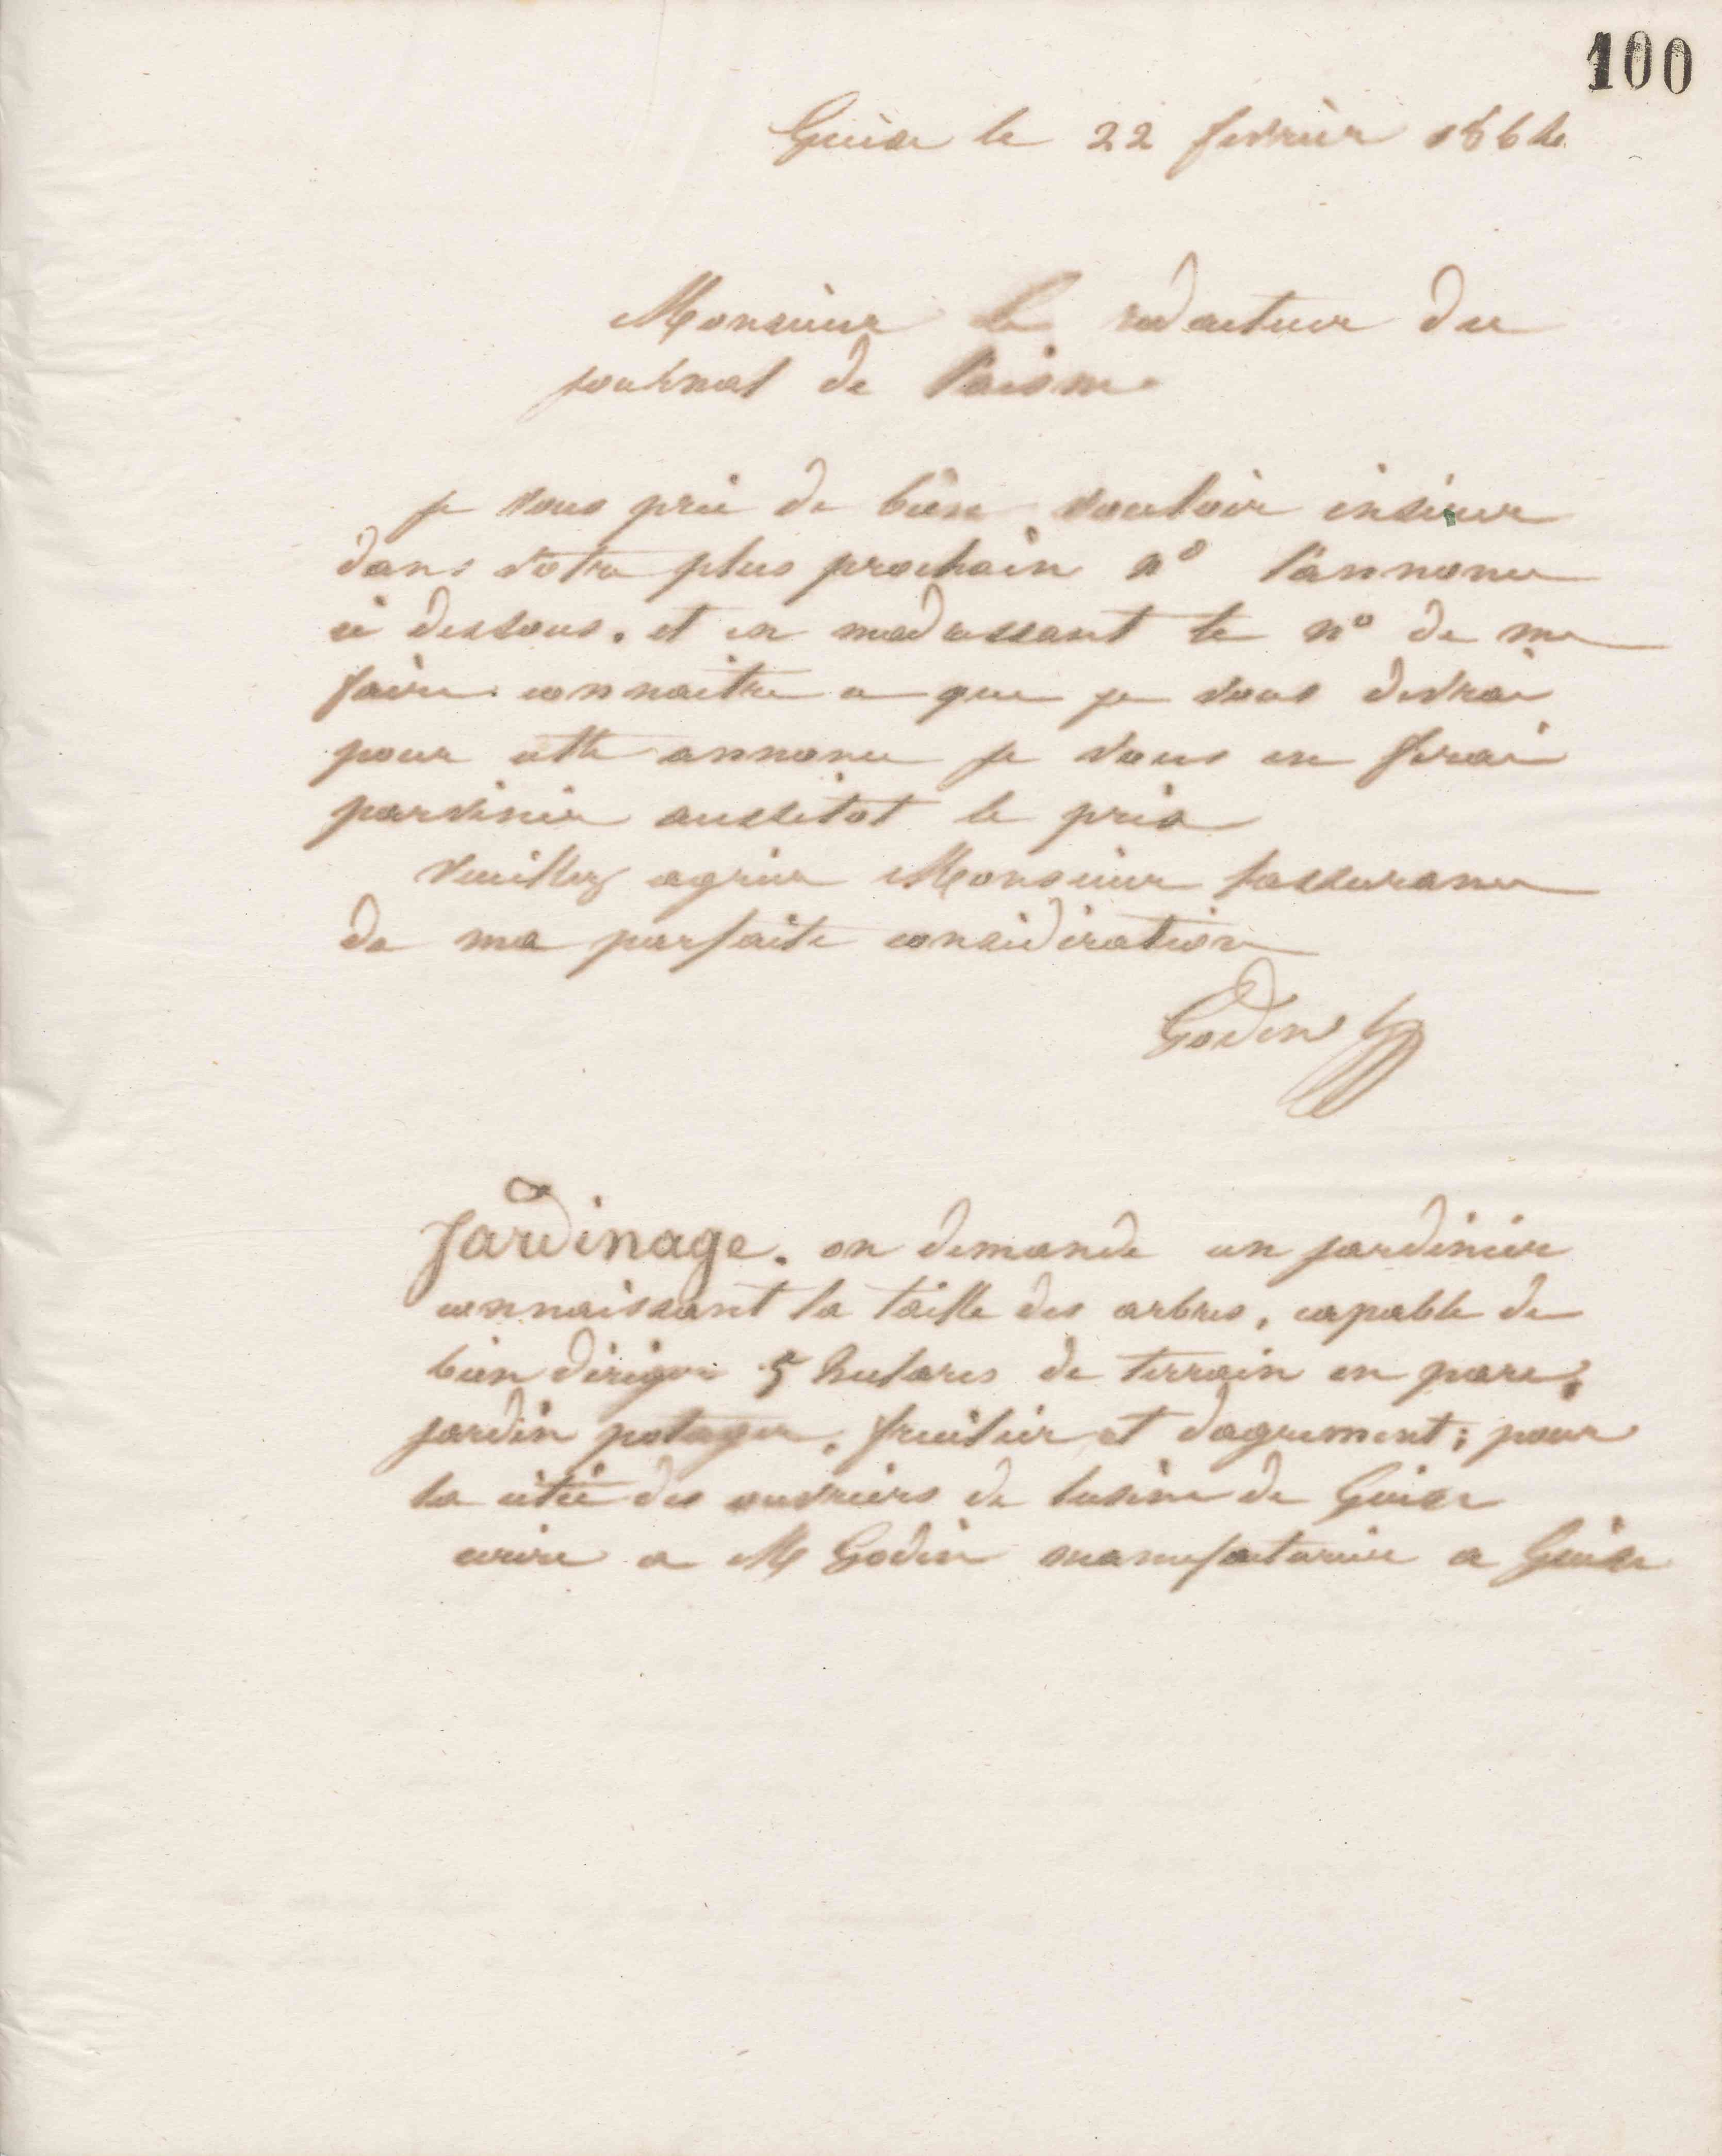 100
Guise le 22 fevrier 1864
Monsieur le redacteur du
journal de l'aisne
je vous prie de bien vouloir inserer
dans votre plus prochain n° l'annonce
ci dessous. et en m'adressant le n° de me
faire connaitre ce que je vous devrai
pour cette annonce je vous en ferai
parvenir aussitot le prix
veuillez agréer Monsieur l'assurance
de ma parfaite considération
Godin
Jardinage. on demande un jardinier
connaissant la taille des arbres, capable de
bien diriger 5 hectares de terrain en parc,
jardin potager, fruitier et dagrement; pour
la cité des ouvriers de lusine de Guise
ecrire a M Godin manufacturier a Guise